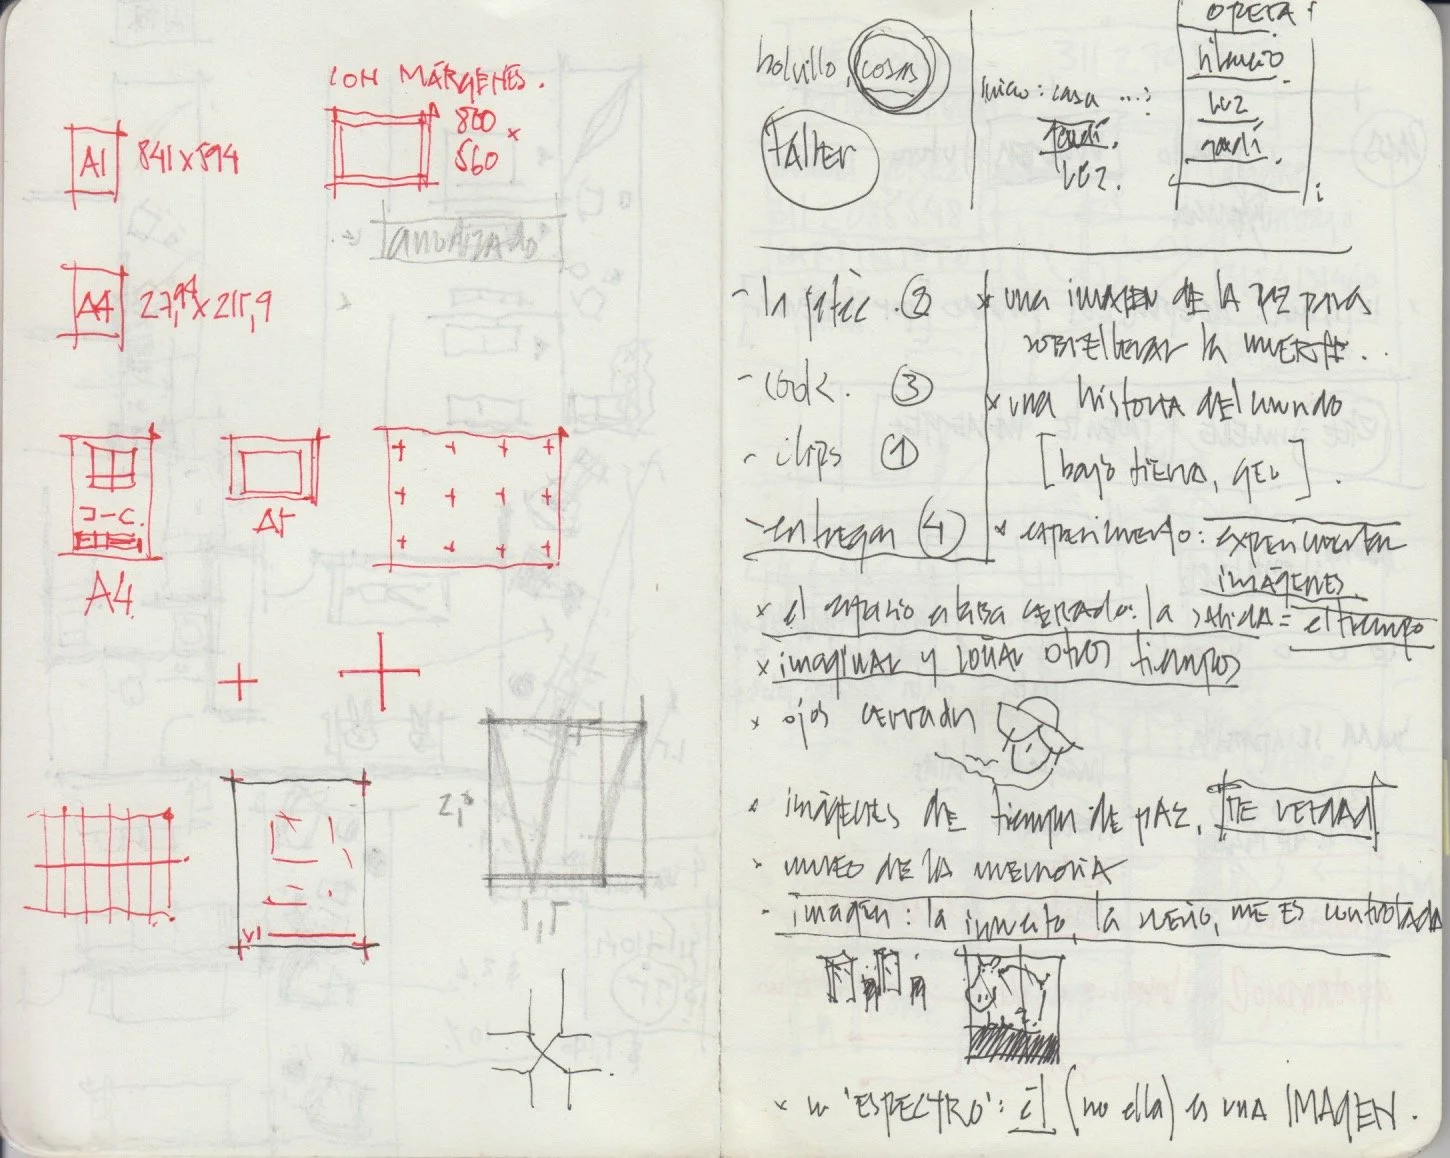 CON MÁRGENES.
800 x
560
A1 841x594
tamatizado
A4 27,94x215,9
J-C.
A4
A5
2,
1,5
v1
bolsillo, cosas
taller
inicio: casa ...:
jardí.
luz.
OPERA
silencio
luz
jardí.
- 2
- cook. 3
- clips 1
- entregan 4
x una imagen DE LA paz para
sobrellevar la muerte...
x una historia del mundo
[bajo tierra, geo].
x experimento: experimentar
imágenes.
x el espacio estaba cerrado: la salida = el tiempo
x imaginar y soñar otros tiempos
x ojos cerrados
imágenes de tiempos de paz, DE VERDAD
museo DE LA memoria
- imagen: la invento, la sueño, me es controlada
x un 'ESPECTRO': él (no ella) es una IMAGEN.